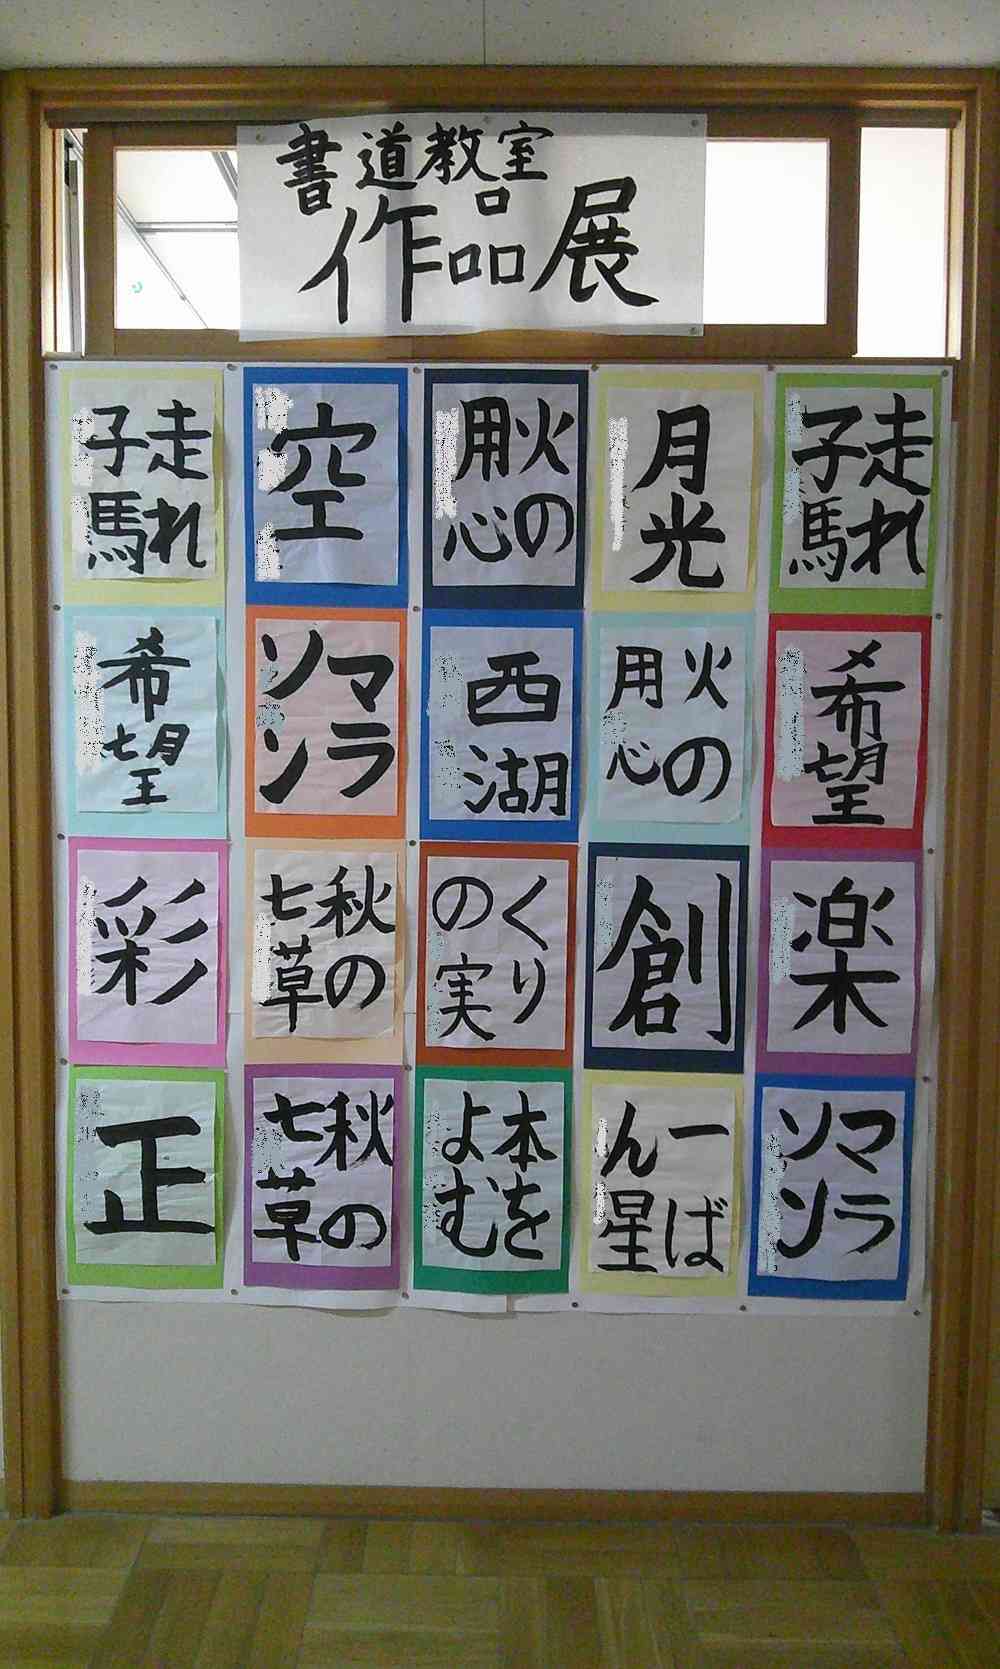 書道教室
作品展
走れ
子馬
空
火の
用心
月光
走れ
子馬
希望
マラ
ソン
西湖
火の
用心
希望
彩
秋の
七草
くり
の実
創
楽
正
秋の
七草
本を
よむ
一ば
ん星
マラ
ソン